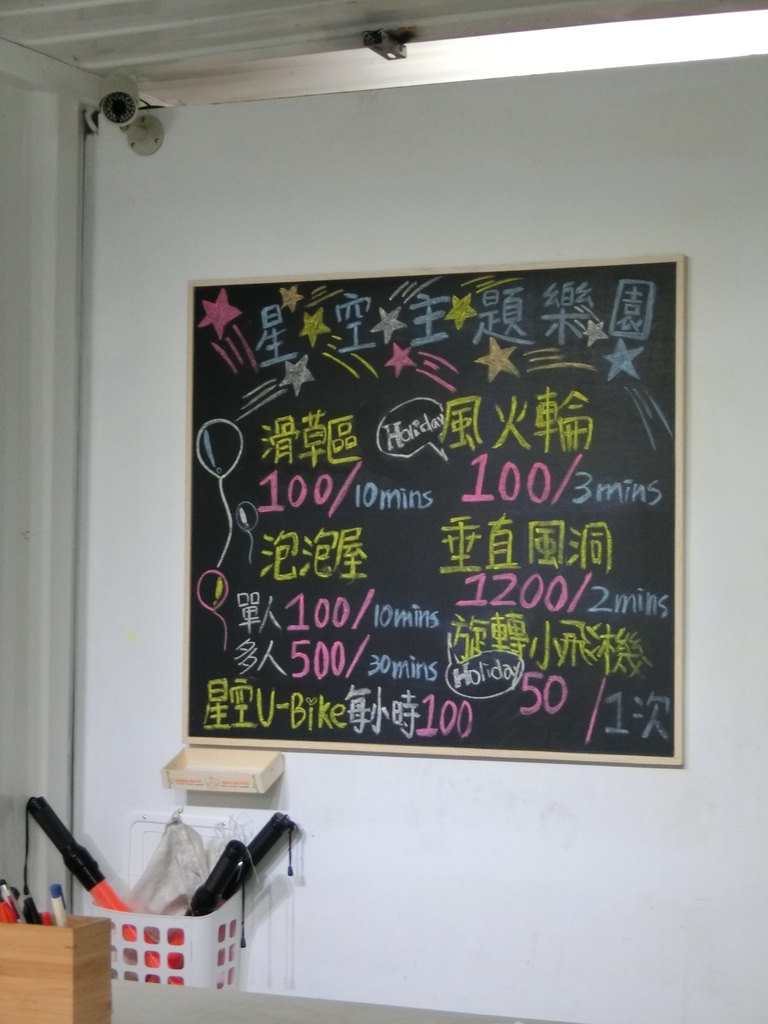 星空主題樂園
滑草區
100/10mins
Holiday 風火輪
100/3mins
泡泡屋
單人100/10mins
多人500/30mins
垂直風洞
1200/2mins
旋轉小飛機
Holiday 50/1次
星空U-Bike每小時100